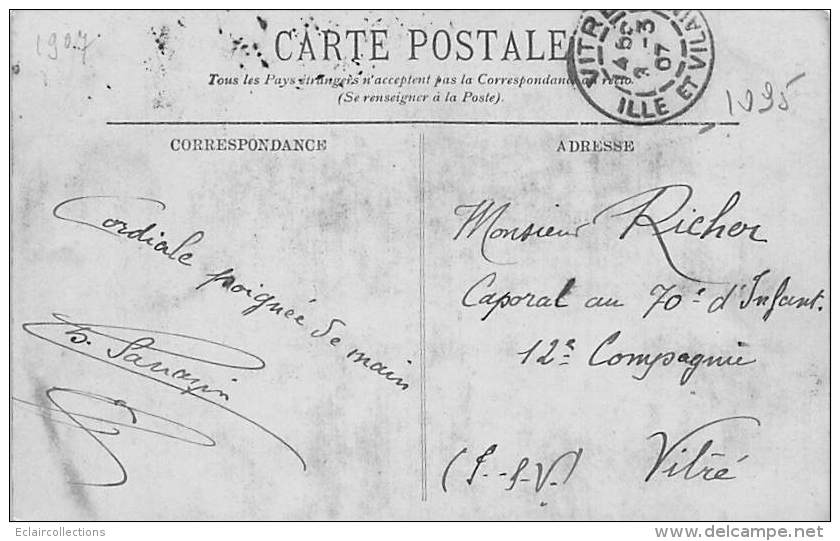 1907
CARTE POSTALE
Tous les Pays étrangers n'acceptent pas la Correspondance au recto.
(Se renseigner à la Poste).
VITRÉ
3 -3
07
ILLE ET VILAINE
1995
CORRESPONDANCE
ADRESSE
Cordiale poignée de main
Monsieur Richer
Caporal au 70e d'Infant.
12e Compagnie
Vitré
(I.-&-V.)
Eclaircollections
www.delcampe.net